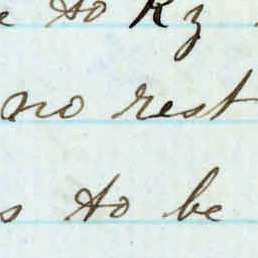 to Ky
no rest
s to be